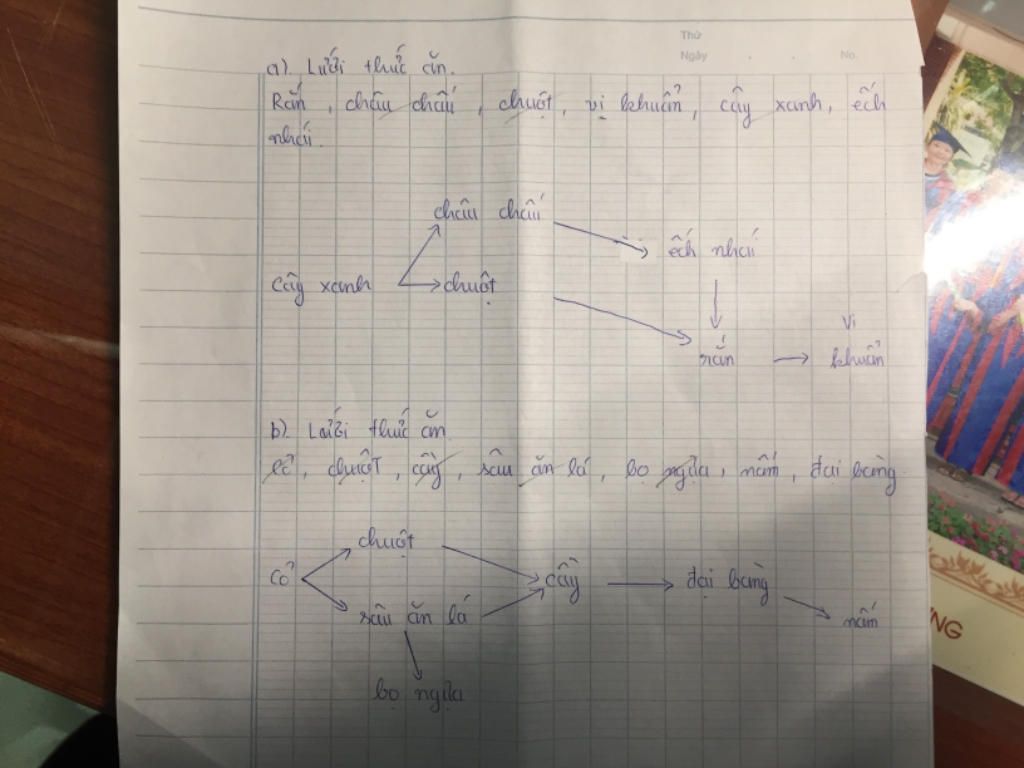 Thứ
Ngày . . No.
a). Lưới thức ăn.
Rắn, châu chấu, chuột, vi khuẩn, cây xanh, ếch
nhái.
châu chấu
ếch nhái
Cây xanh chuột
Vi
rắn khuẩn
b). Lưới thức ăn
Cỏ, chuột, cầy, sâu ăn lá, bọ ngựa, nấm, đại bàng
chuột
Cỏ cầy đại bàng
sâu ăn lá nấm
bọ ngựa
NG